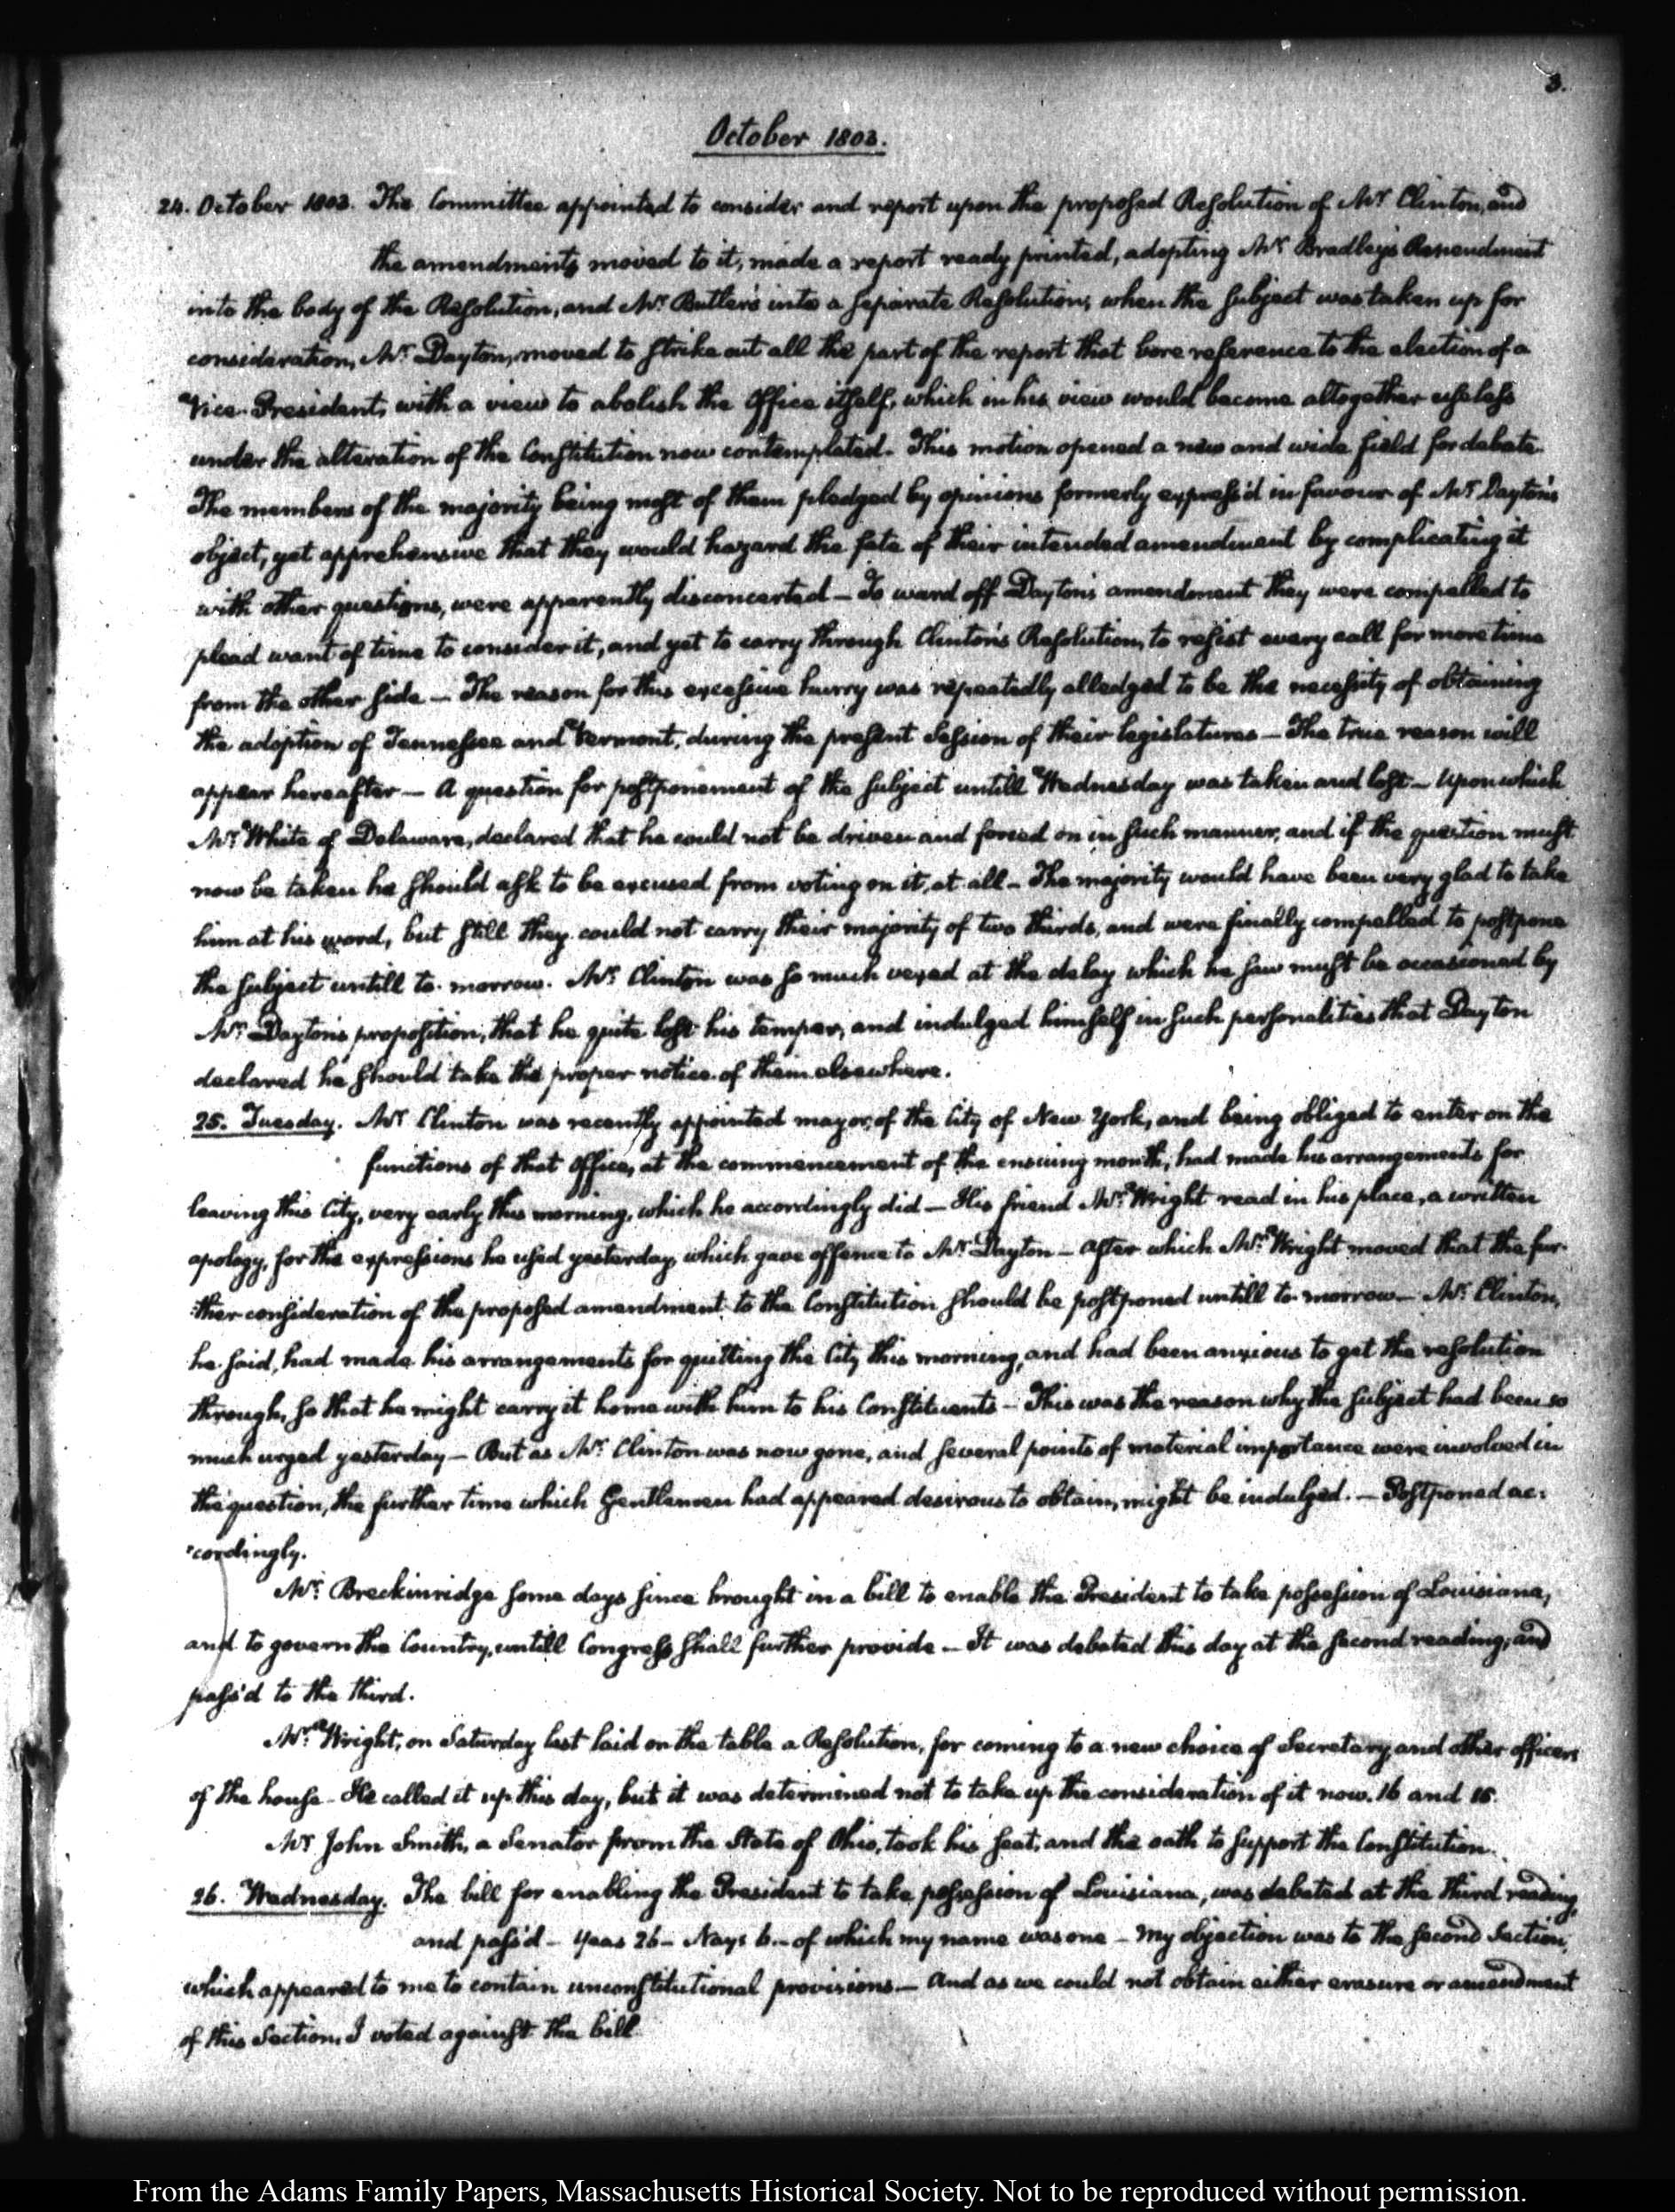 3.
October 1803.
24. October 1803. The Committee appointed to consider and report upon the proposed Resolution of Mr Clinton, and
the amendments moved to it, made a report ready printed, adopting Mr Bradley's Amendment
into the body of the Resolution, and Mr Butler's into a separate Resolution; when the subject was taken up for
consideration, Mr Dayton, moved to strike out all the part of the report that bore reference to the election of a
Vice-President, with a view to abolish the Office itself, which in his view would become altogether useless
under the alteration of the Constitution now contemplated. This motion opened a new and wide field for debate.
The members of the majority being most of them pledged by opinions formerly express'd in favour of Mr Dayton's
object, yet apprehensive that they would hazard the fate of their intended amendment by complicating it
with other questions, were apparently disconcerted — To ward off Dayton's amendment they were compelled to
plead want of time to consider it, and yet to carry through Clinton's Resolution, to resist every call for more time
from the other side — The reason for this excessive hurry was repeatedly alledged to be the necessity of obtaining
the adoption of Tennessee and Vermont, during the present session of their legislatures — The true reason will
appear hereafter — A question for postponement of the subject untill Wednesday was taken and lost — Upon which
Mr White of Delaware, declared that he could not be driven and forced on in such manner, and if the question must
now be taken he should ask to be excused from voting on it, at all — The majority would have been very glad to take
him at his word, but still they could not carry their majority of two thirds, and were finally compelled to postpone
the subject untill to-morrow. Mr Clinton was so much vexed at the delay which he saw must be occasioned by
Mr Dayton's proposition, that he quite lost his temper, and indulged himself in such personalities that Dayton
declared he should take the proper notice of them elsewhere.
25. Tuesday. Mr Clinton was recently appointed mayor of the City of New York, and being obliged to enter on the
functions of that Office, at the commencement of the ensuing month, had made his arrangements for
leaving this City, very early this morning, which he accordingly did — His friend Mr Wright read in his place, a written
apology, for the expressions he used yesterday, which gave offence to Mr Dayton — After which Mr Wright moved that the fur-
:ther consideration of the proposed amendment to the Constitution should be postponed untill to-morrow — Mr Clinton,
he said, had made his arrangements for quitting the City this morning, and had been anxious to get the resolution
through, so that he might carry it home with him to his Constituents — This was the reason why the subject had been so
much urged yesterday — But as Mr Clinton was now gone, and several points of material importance were involved in
the question, the further time which Gentlemen had appeared desirous to obtain, might be indulged. — Postponed ac:
:cordingly.
Mr Breckinridge some days since brought in a bill to enable the President to take possession of Louisiana,
and to govern the Country, untill Congress shall further provide — It was debated this day at the second reading, and
pass'd to the third.
Mr Wright, on Saturday last laid on the table a Resolution, for coming to a new choice of Secretary and other officers
of the house — He called it up this day, but it was determined not to take up the consideration of it now. 16 and 15.
Mr John Smith, a Senator from the State of Ohio, took his seat, and the oath to support the Constitution.
26. Wednesday. The bill for enabling the President to take possession of Louisiana, was debated at the third reading,
and pass'd — Yeas 26 — Nays 6. — of which my name was one — My objection was to the second Section,
which appeared to me to contain unconstitutional provisions — And as we could not obtain either erasure or amendment
of this Section, I voted against the bill.
From the Adams Family Papers, Massachusetts Historical Society. Not to be reproduced without permission.